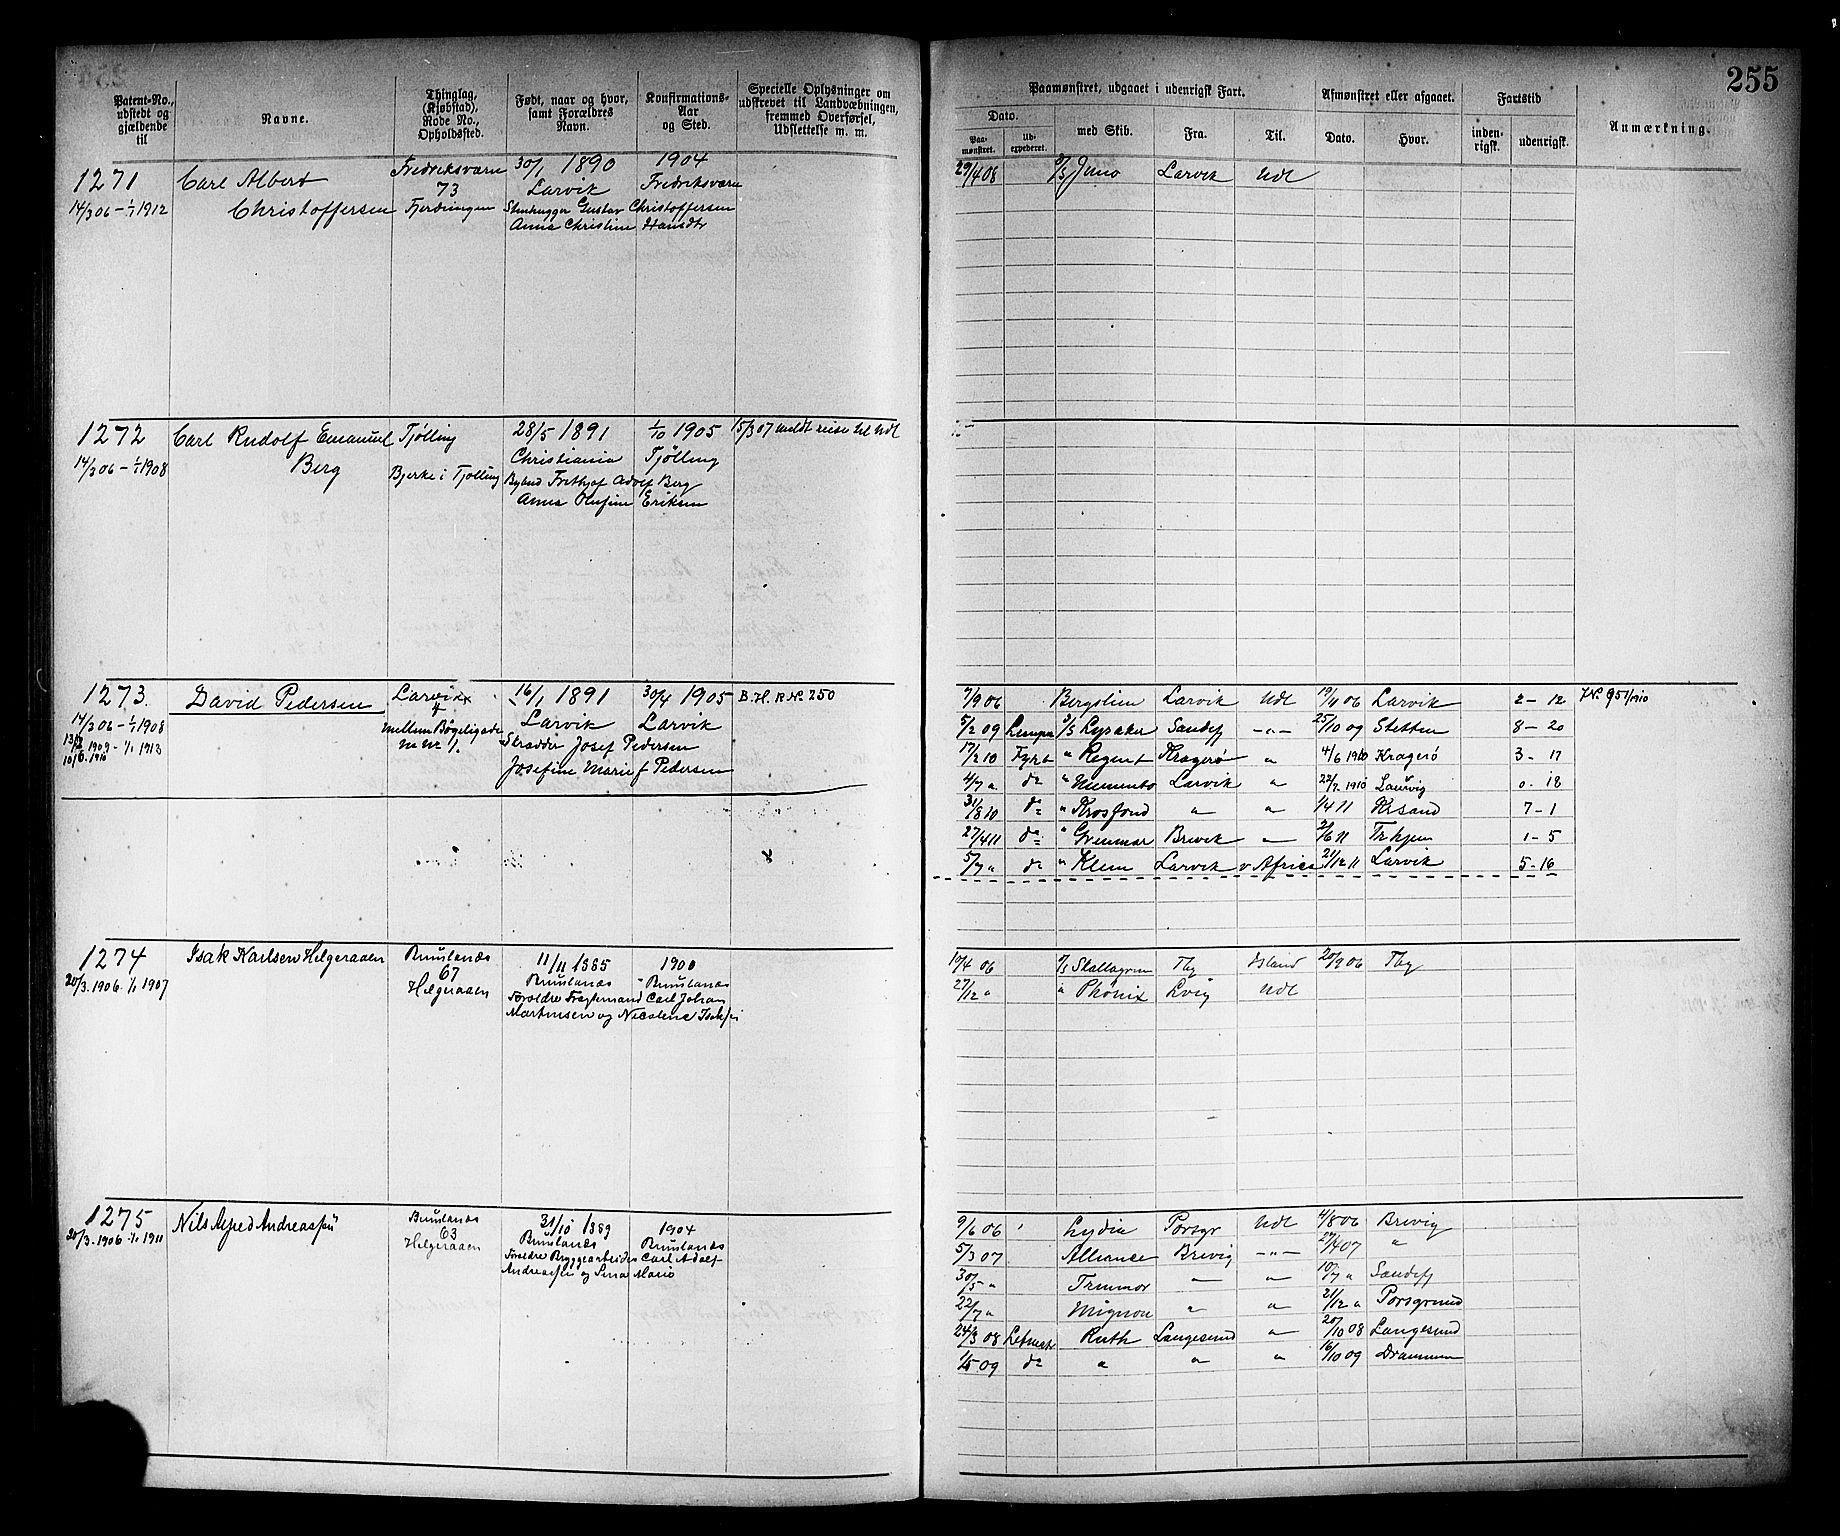 255
Patent-No., udstedt og gjældende til
Navne.
Thinglag, (Kjøbstad), Rode No., Opholdssted.
Født, naar og hvor, samt Forældres Navn.
Konfirmations-Aar og Sted.
Specielle Oplysninger om udskrevet til Landvæbningen, fremmed Overførsel, Udslettelse m. m.
Paamønstret, udgaaet i udenrigsk Fart.
Dato.
Paa-mønstret.
Ud-expederet.
med Skib.
Fra.
Til.
Afmønstret eller afgaaet.
Dato.
Hvor.
Fartstid
inden-rigsk.
udenrigsk.
Anmærkning.
1271
14/3 06 - 1/1 1912
Carl Albert
Christoffersen
Fredriksværn
73
Fjerdingen
30/1 1890
Larvik
Stenhugger Gustav Christoffersen
Anna Christine Hansdtr
1904
Fredriksværn
29/4 08 Juno Larvik Udl
1272
14/3 06 - 1/1 1908
Carl Rudolf Emanuel
Berg
Tjølling
Bjerke i Tjølling
28/5 1891
Christiania
Frithjof Adolf Berg
Anna Olufine Eriksen
1/10 1905
Tjølling
15/3 07 meldt reise til Udl
1273.
14/3 06 - 1/1 1908
13/2 1909 - 1/1 1913
10/6 1910
David Pedersen
Larvik
4
mellem Bøgeligade
16/1 1891
Larvik
Skrædder Josef Pedersen
Josefine Marie f Pedersen
30/4 1905
Larvik
B. H. R No 250
7/9 06 Bergslien Larvik Udl 19/11 06 Larvik 2 - 12 JNo 951/1910
5/2 09 Lempr Lysaker Sandefj -"- 25/10 09 Stettin 8 - 20
17/2 10 Fyrb " Regent Kragerø " 4/6 1910 Kragerø 3 - 17
4/7 " do " Memento Larvik " 22/7 1910 Laurvig 0 - 18
31/8 10 do " Krosfond " " 1/4 11 Krsand 7 - 1
27/4 11 do " Brevik " 2/6 11 Trhjem 1 - 5
5/7 " do " Klem Larvik v Africa 21/12 11 Larvik 5 - 16
1274
20/3. 1906. 1/1 1907
Isak Karlsen Helgeraaen
Brunlanæs
67
Helgeraaen
11/11 1885
Brunlanæs
Forældre Fragtemand Carl Johan
Martinsen og Nicoline Isaksen
1900
Brunlanæs
10/4 06 Skallagrim Tbg Island 20/9 06 Tbg
27/12 " " Phønix Lvig Udl
1275
20/3. 1906 - 1/1 1911
Nils Alfred Andreassen
Brunlanæs
63
Helgeraaen
31/10 1889
Brunlanæs
Forældre Bryggearbeider Carl Adolf
Andreassen og Sina Marie
1904
Brunlanæs
9/6 06 Lydia Porsgr Udl 4/8 06 Brevig
5/3 07 Alliance Brevig -"- 27/4 07 "
30/5 " Trummor " " 10/7 " Sandefj
22/7 " Mignon " " 21/12 " Porsgrund
24/3 08 Letmatr Ruth Langesund " 20/10 08 Langesund
1/5 09 do " " " 16/10 09 Drammen